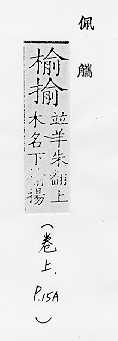 佩觿
榆揄
並羊朱翻上
木名下揚
(卷上. P.15A)